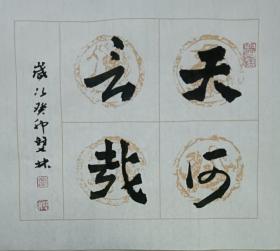 天何
言哉
歲次癸卯